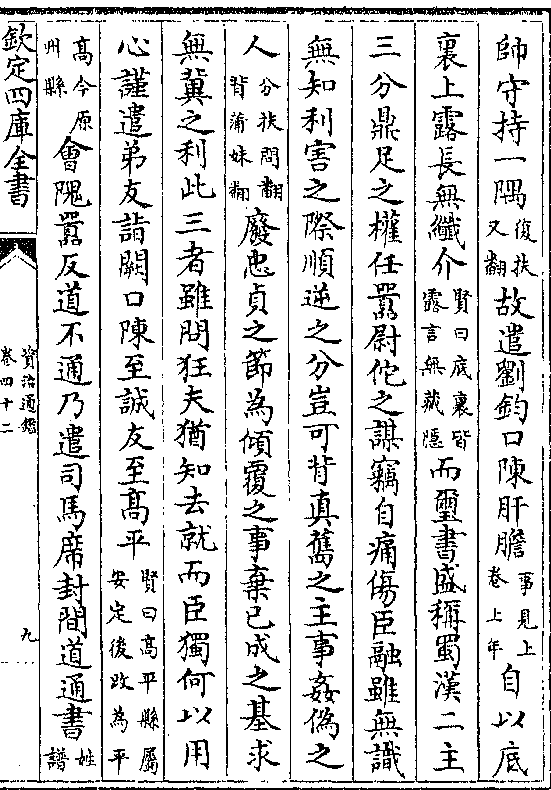 帥守持一隅復扶又翻故遣劉鈞口陳肝膽事見上卷上年自以底
裏上露長無纖介賢曰底裏皆露言無藏隱而璽書盛稱蜀漢二主
三分鼎足之權任囂尉佗之謀竊自痛傷臣融雖無識
無知利害之際順逆之分豈可背真舊之主事姦偽之
人分扶問翻背蒲妹翻廢忠貞之節為傾覆之事棄已成之基求
無冀之利此三者雖問狂夫猶知去就而臣獨何以用
心謹遣弟友詣闕口陳至誠友至高平賢曰高平縣屬安定後改為平
高今原州縣會隗囂反道不通乃遣司馬席封間道通書姓譜
欽定四庫全書
資治通鑑
卷四十二
九